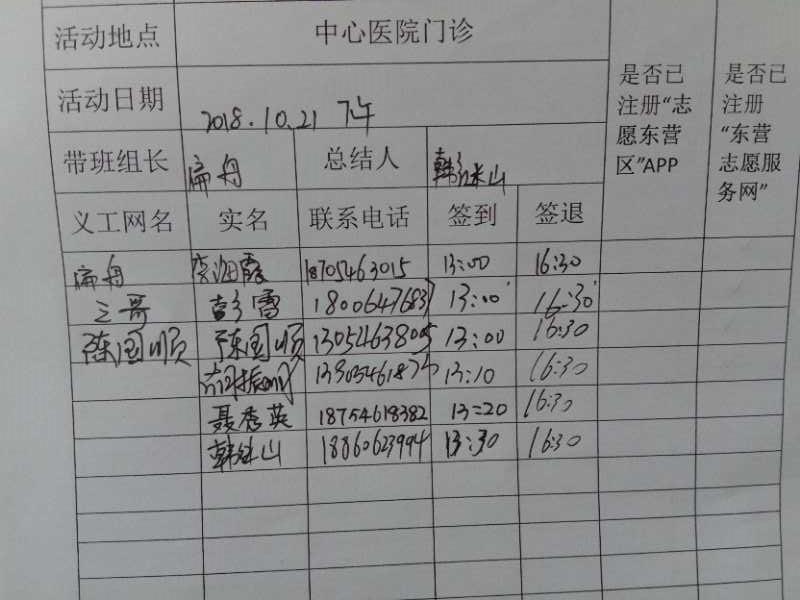 活动地点 中心医院门诊
活动日期 2018.10.21 下午
带班组长 扁舟 总结人 韩继山
是否已注册“志愿东营区”APP
是否已注册“东营志愿服务网”
义工网名 实名 联系电话 签到 签退
扁舟 李海霞 18705463015 13:00 16:30
三哥 彭雪 18006476837 13:00 16:30
陈国顺 陈国顺 13054638005 13:00 16:30
13:10 16:30
聂秀英 18754618382 13:20 16:30
韩继山 18860623994 13:30 16:30